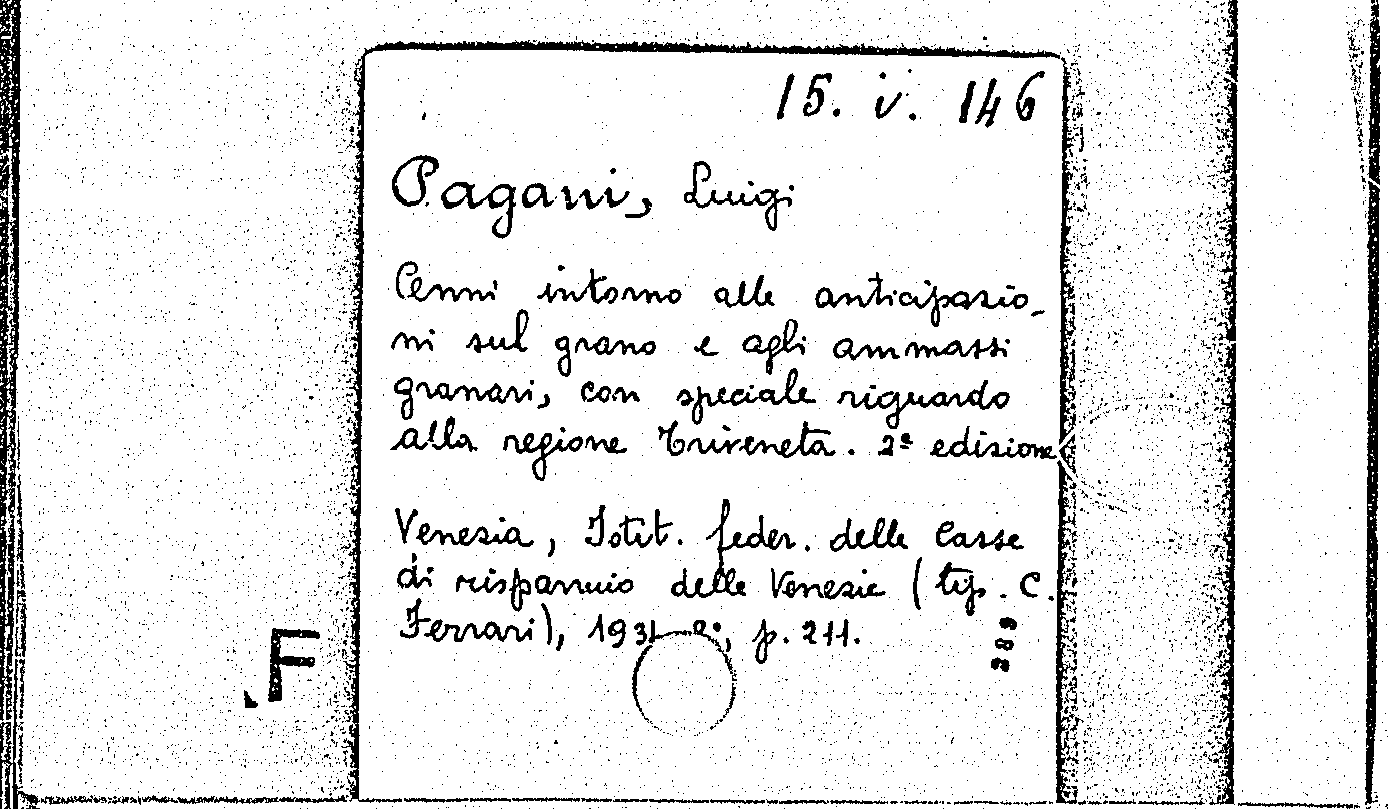 15. i. 146
Pagani, Luigi
Cenni intorno alle anticipazio-
ni sul grano e agli ammassi
granari, con speciale riguardo
alla regione Triveneta. 2ª edizione
Venezia, Istit. feder. delle Casse
di risparmio delle Venezie (tip. C.
Ferrari), 1931 8°, p. 211.
F